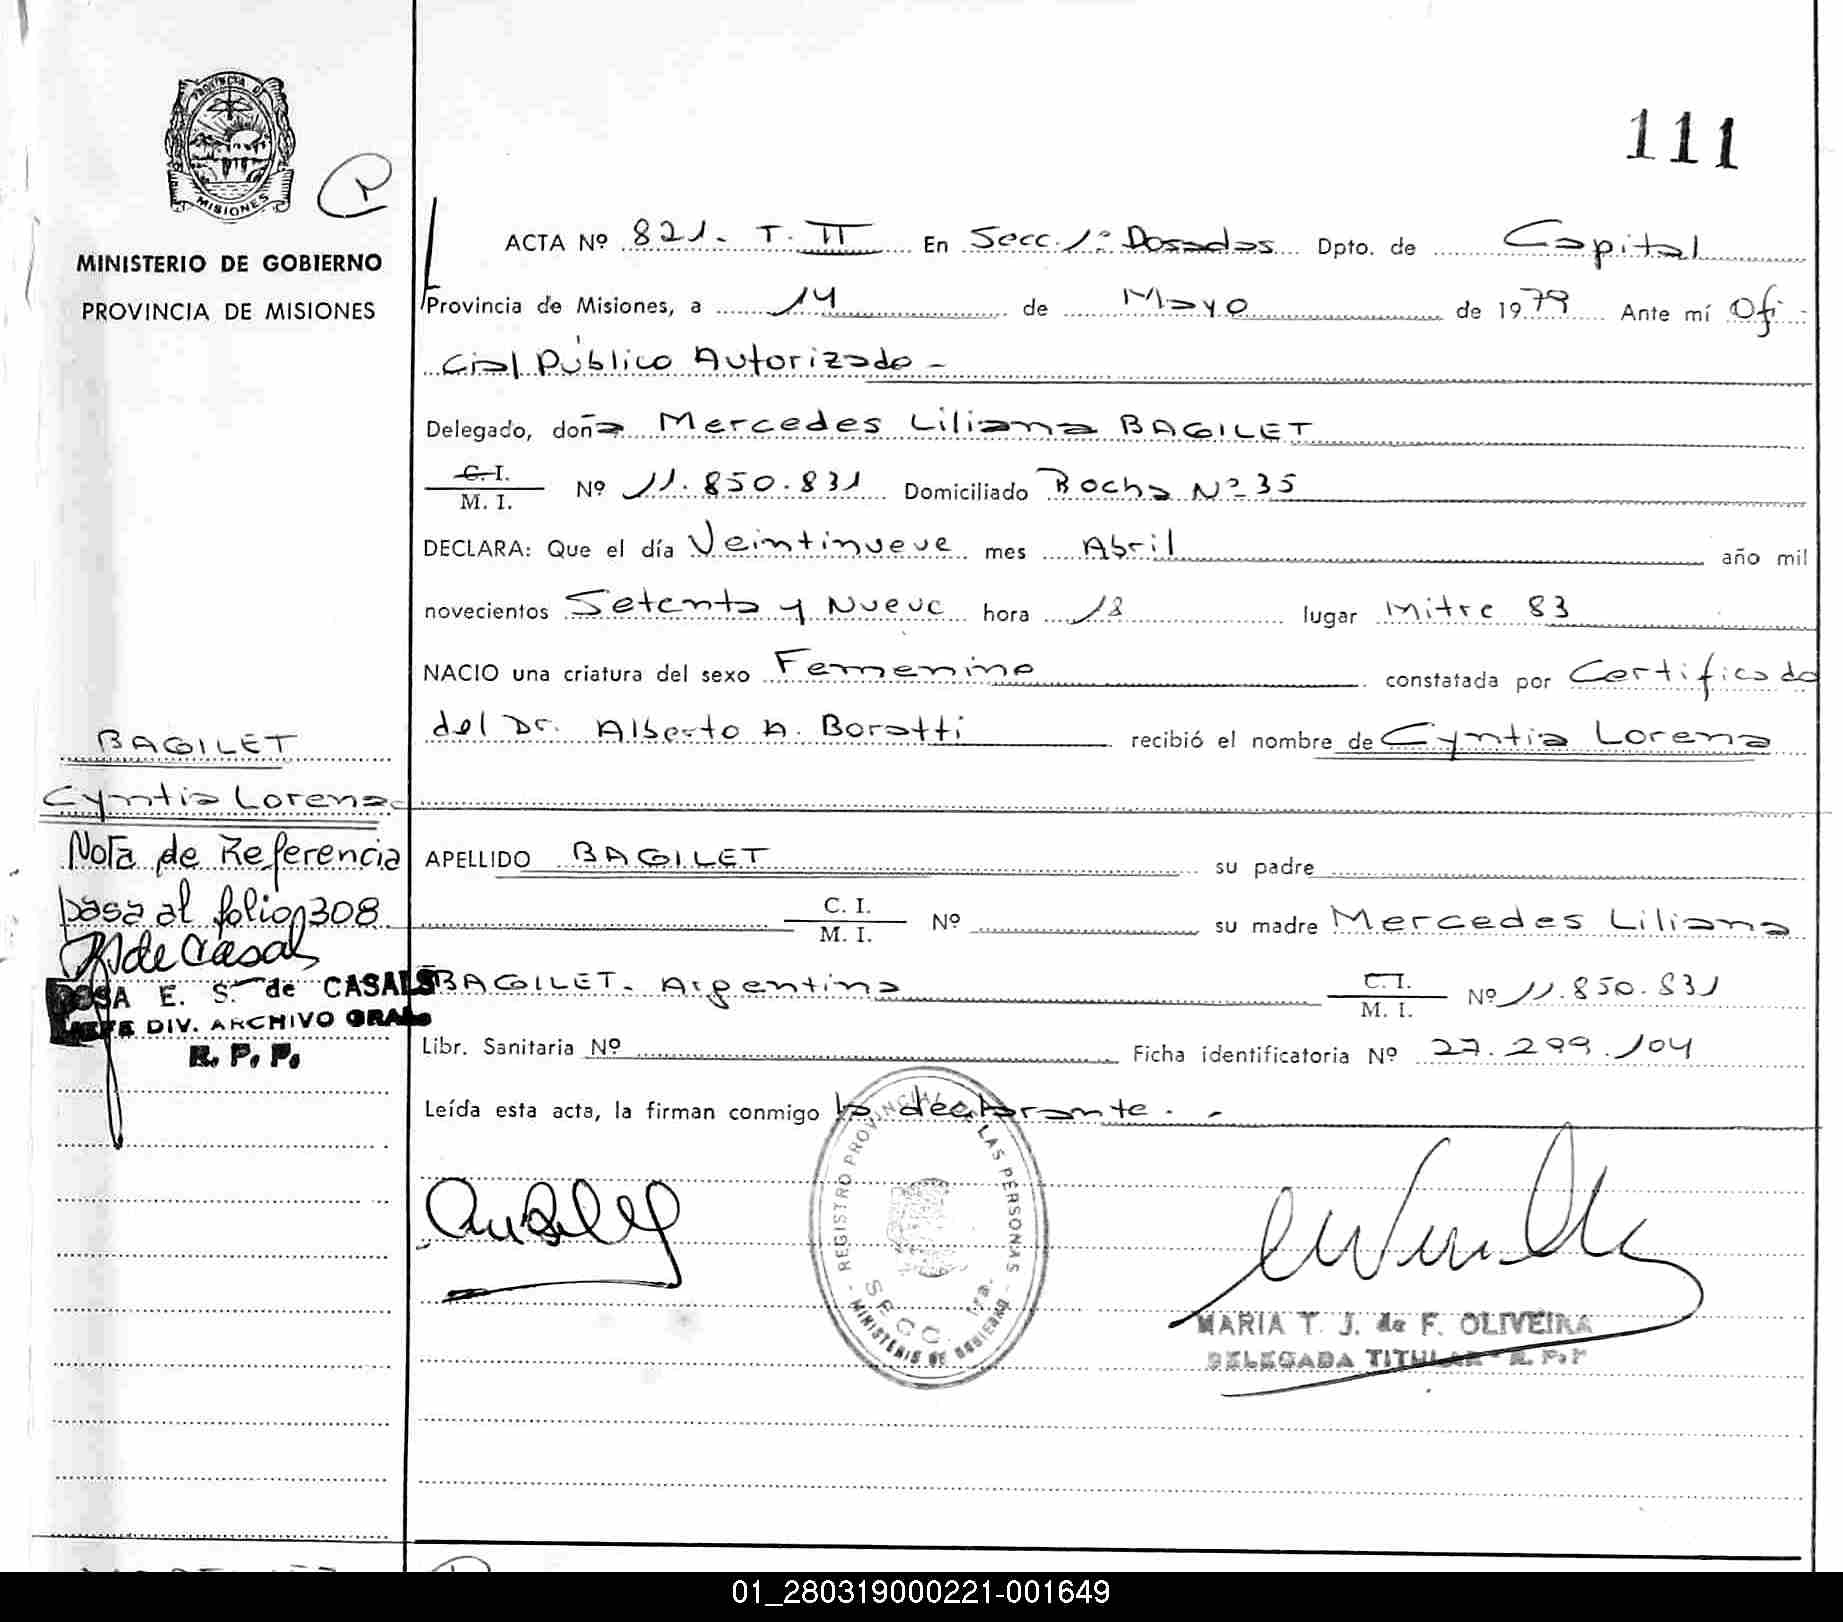 PROVINCIA D
MISIONES
MINISTERIO DE GOBIERNO
PROVINCIA DE MISIONES
111
ACTA Nº 821. T. II En Secc. 1ª Posadas Dpto. de Capital
Provincia de Misiones, a 14 de Mayo de 1979 Ante mí Ofi-
cial Público Autorizado -
Delegado, doña Mercedes Liliana BAGILET
C. I.
M. I. Nº 11.850.831 Domiciliado Bocha Nº 35
DECLARA: Que el día Veintinueve mes Abril año mil
novecientos Setenta y Nueve hora 18 lugar Mitre 83
NACIO una criatura del sexo Femenino constatada por Certificado
del Dr. Alberto A. Boratti recibió el nombre de Cyntia Lorena
APELLIDO BAGILET su padre
C. I.
M. I. Nº su madre Mercedes Liliana
BAGILET. Argentina C. I.
M. I. Nº 11.850.831
Libr. Sanitaria Nº Ficha identificatoria Nº 27.299.104
Leída esta acta, la firman conmigo la declarante. -
BAGILET
Cyntia Lorena
Nota de Referencia
pasa al folio 308
de Casals
ROSA E. S. de CASALS
JEFE DIV. ARCHIVO GRAL.
R. P. P.
REGISTRO PROVINCIAL DE LAS PERSONAS
SECC. 1ra.
MINISTERIO DE GOBIERNO
MARIA T. J. de F. OLIVEIRA
DELEGADA TITULAR - R. P. P
01_280319000221-001649